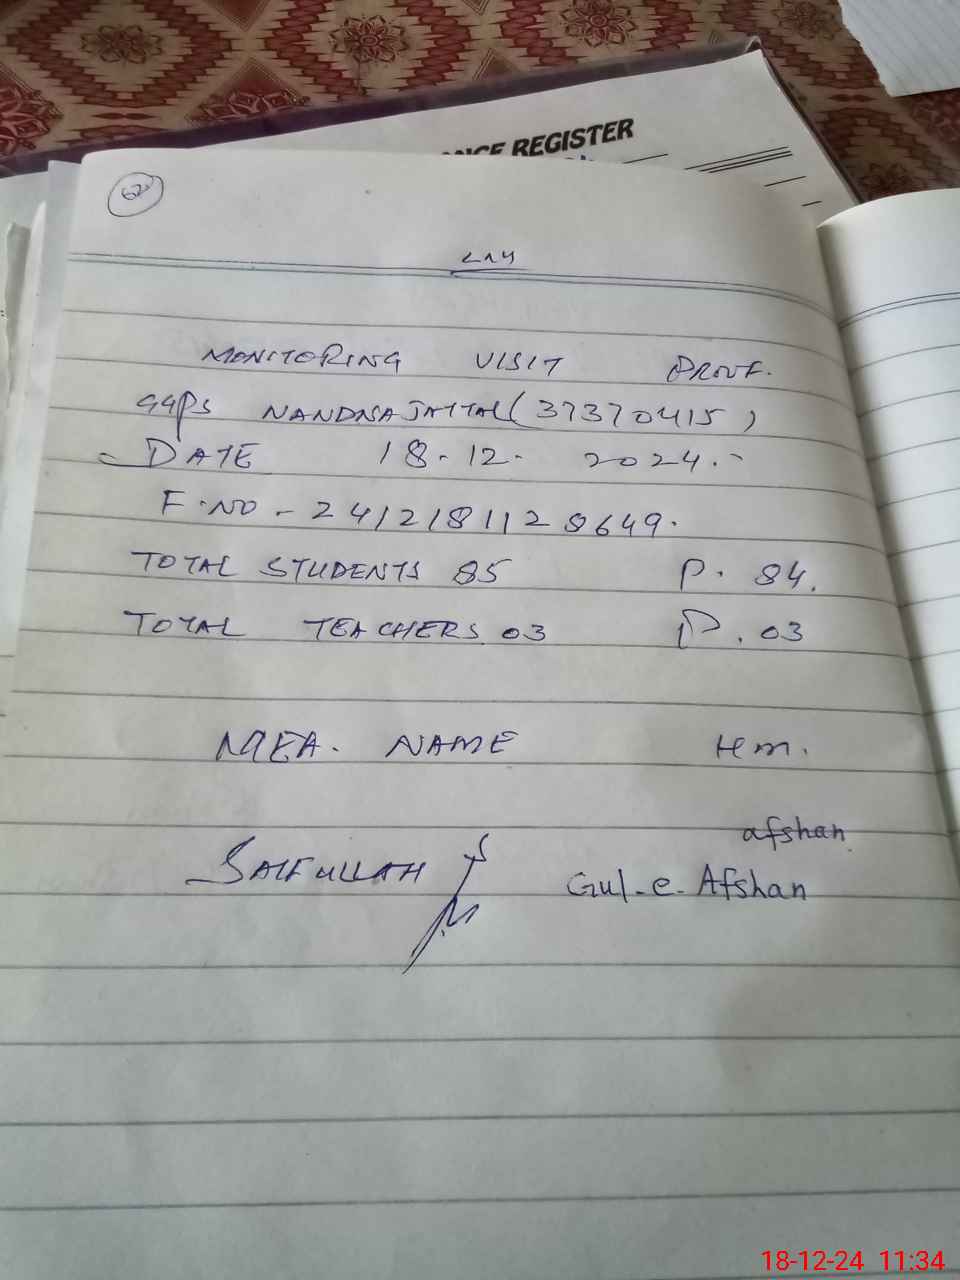 NCE REGISTER
62
MONITORING VISIT PROUF.
GGPS NANDNA JATTAL (37370415)
DATE 18.12. 2024.
F.NO - 2412181128649.
TOTAL STUDENTS 85 P. 84.
TOTAL TEACHERS 03 P. 03
MEA. NAME Hm.
afshan
SAIFULLAH Gul-e-Afshan
18-12-24 11:34